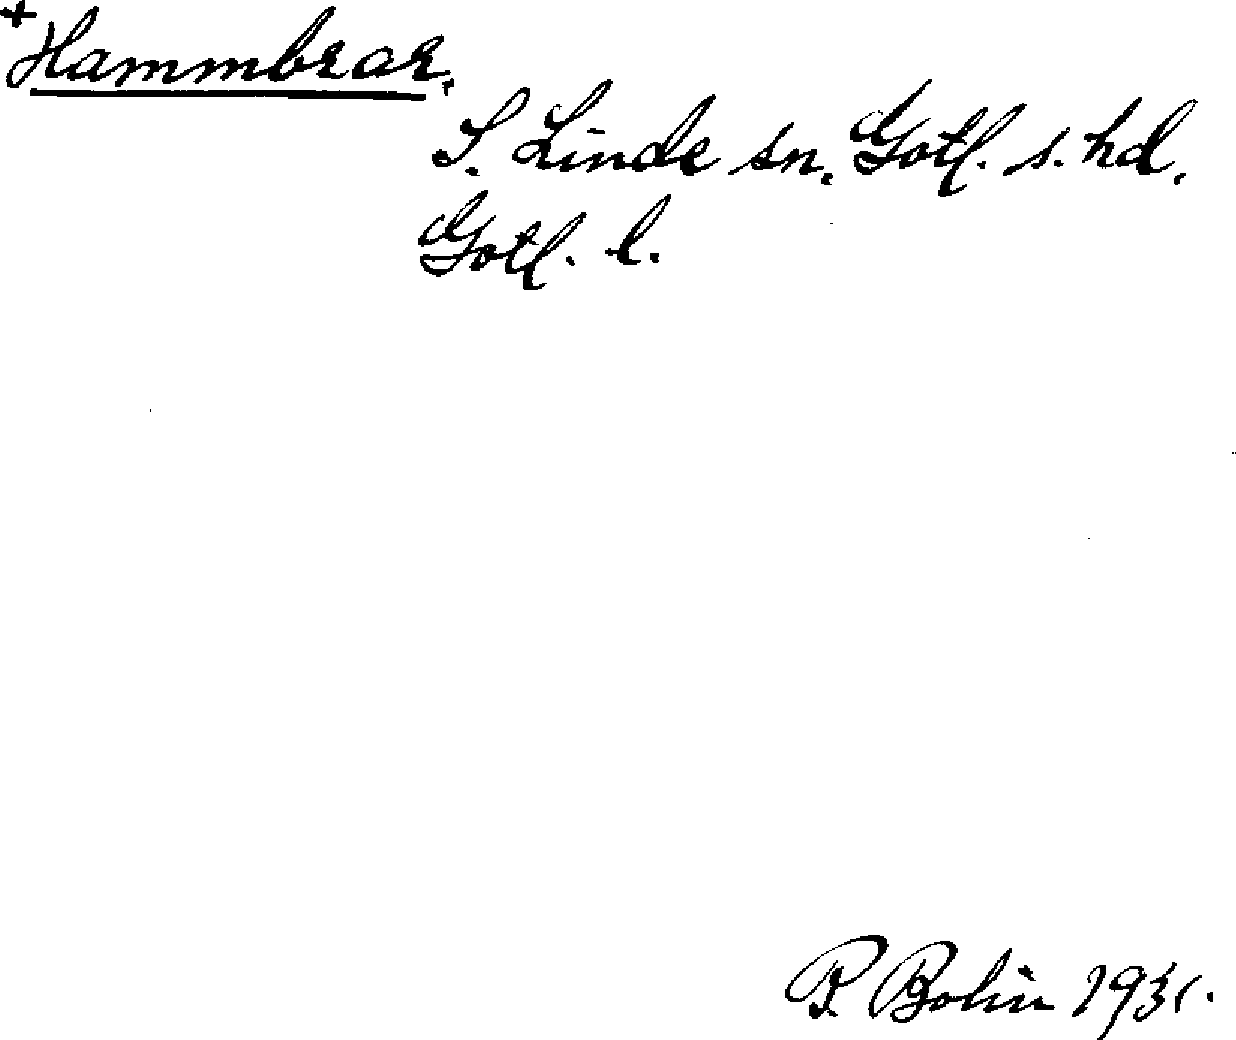 +
Hammbrar.
S. Linde sn. Gotl. s. hd.
Gotl. l.
P. Bolin 1931.